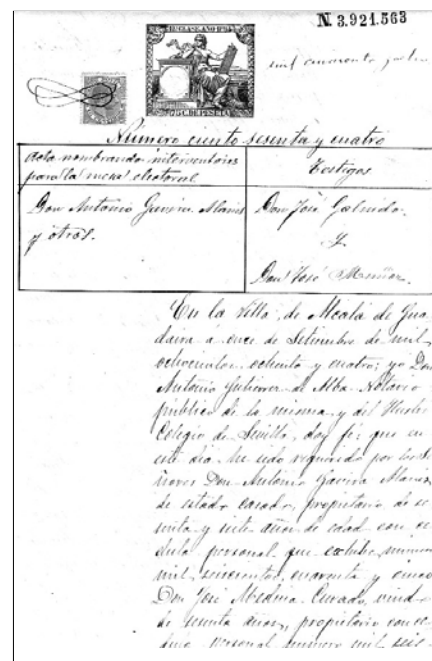 N. 3.921.563
mil cincuenta y
Número ciento sesenta y cuatro
Acta nombrando interventores
para la mesa electoral
Testigos
Don Antonio
y otros.
Don José Galindo.
Y
Don José Muñoz.
En la villa de Alcalá de Gua
daira á once de Setiembre de mil
ochocientos ochenta y cuatro; yo Don
Antonio Gutierrez de Alba Notario
público de la misma y del Ilustre
Colegio de Sevilla, doy fé: que en
este dia he sido requerido por los Se
ñores Don Antonio
de estado casado, propietario, de se
y siete años de edad con ce
dula personal que exhibe numero
mil seiscientos cuarenta y cinco
Don José Medina Curado, viudo
de años, propietario con ce
dula personal numero mil seis-